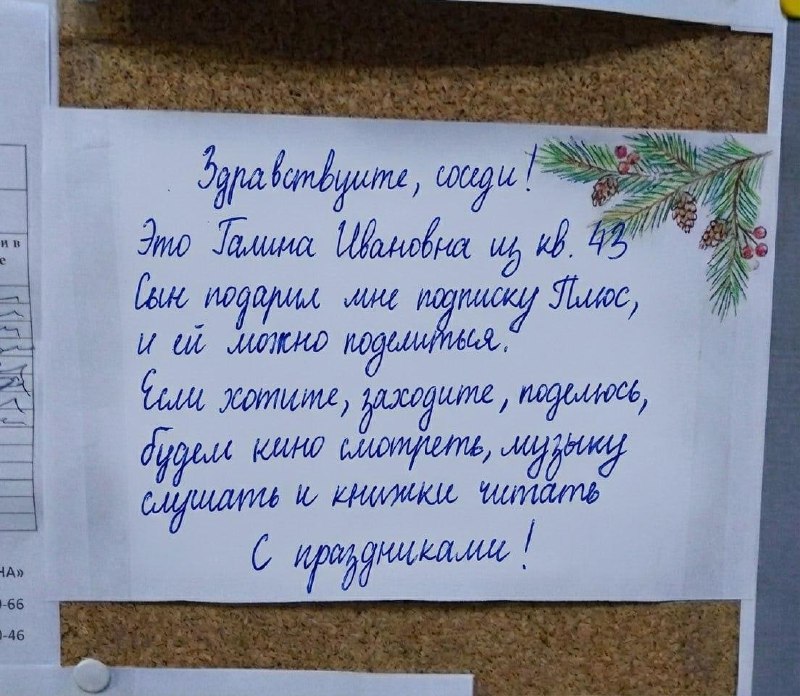 Здравствуите, соседи!
Это Галина Ивановна из кв. 43
Сын подарил мне подписку Плюс,
и ей можно поделиться.
Если хотите, заходите, поделюсь,
будем кино смотреть, музыку
слушать и книжки читать
С праздниками!
и в
е
НА»
-66
-46